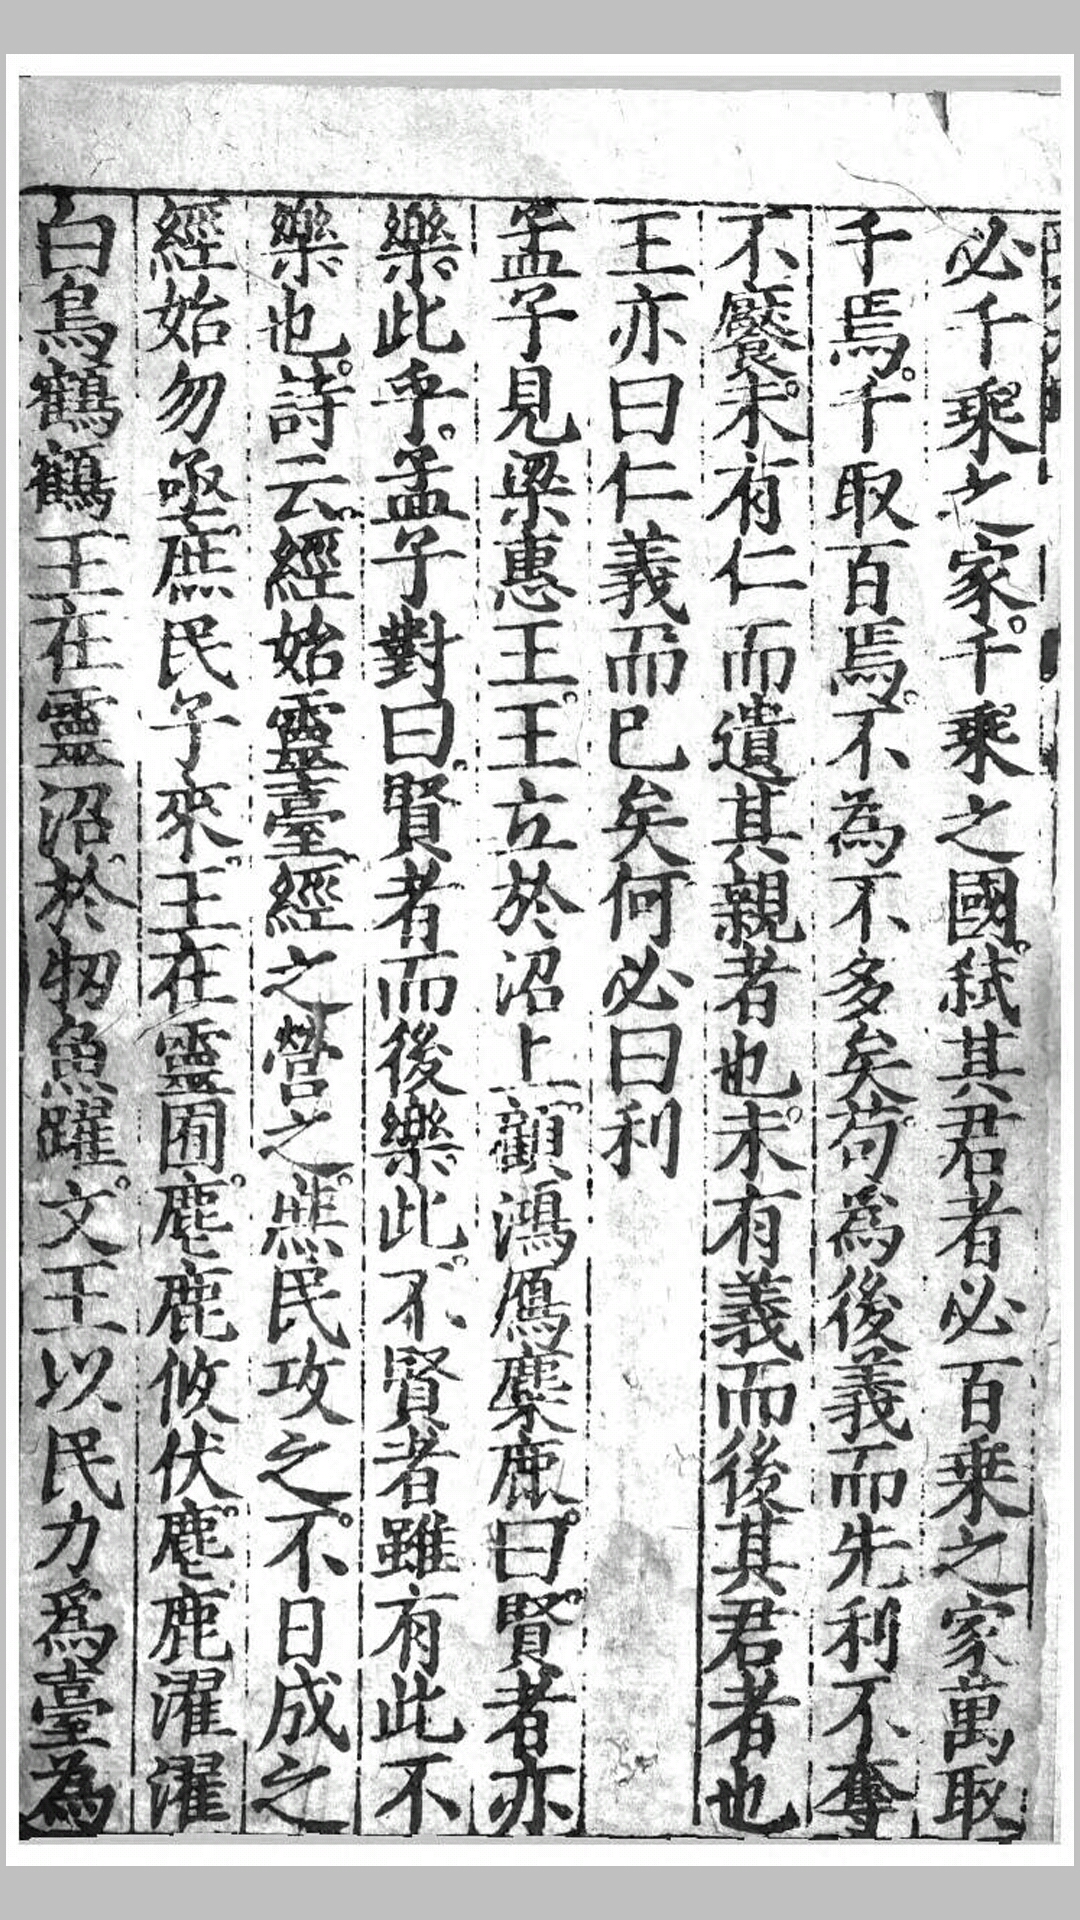 必千乘之家千乘之國弑其君者必百乗之家萬取
千焉千取百焉不為不多矣苟爲後義而先利不奪
不饜未有仁而遺其親者也未有義而後其君者也
王亦曰仁義而已矣何必曰利
孟子見梁惠王王立於沼上顧鴻鴈麋鹿曰賢者亦
樂此乎孟子對曰賢者而後樂此不賢者雖有此不
樂也詩云經始靈臺經之營之庶民攻之不日成之
經始勿亟庶民子來王在靈囿麀鹿攸伏麀鹿濯濯
白鳥鶴鶴王在靈沼於牣魚躍文王以民力爲臺為